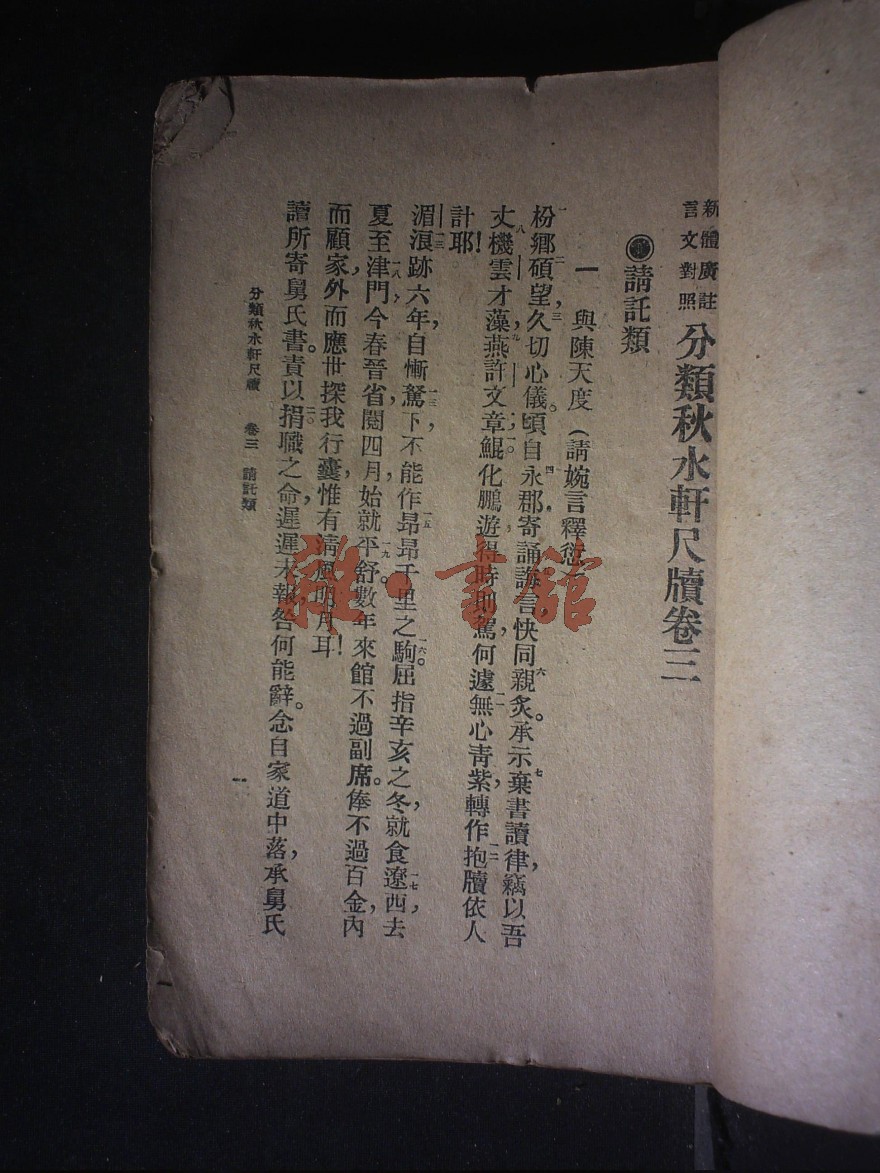 新體廣註
言文對照
分類秋水軒尺牘卷三
●請託類
一 與陳天度(請婉言釋愆)
一枌鄉二碩望,三久切心儀。頃自四永郡寄誦誨言,快同六親炙。承示七棄書讀律,竊以吾
八丈機雲才藻,九燕許文章,一〇鯤化鵬遊,得時則駕,何遽一一無心青紫,轉作一二抱牘依人
計耶!
湄浪跡六年,自慚一三駑下,不能作一五昂昂千里之一六駒。屈指辛亥之冬,就食一七遼西,去
夏至一八津門,今春晉省,閱四月始就一九平舒。數年來館不過副席。俸不過百金,內
而顧家,外而應世,探我行囊,惟有清風明月耳!
讀所寄舅氏書。責以二〇捐職之命,遲遲未報,咎何能辭。念自家道中落,承舅氏
分類秋水軒尺牘 卷三 請託類
一
雜·書館